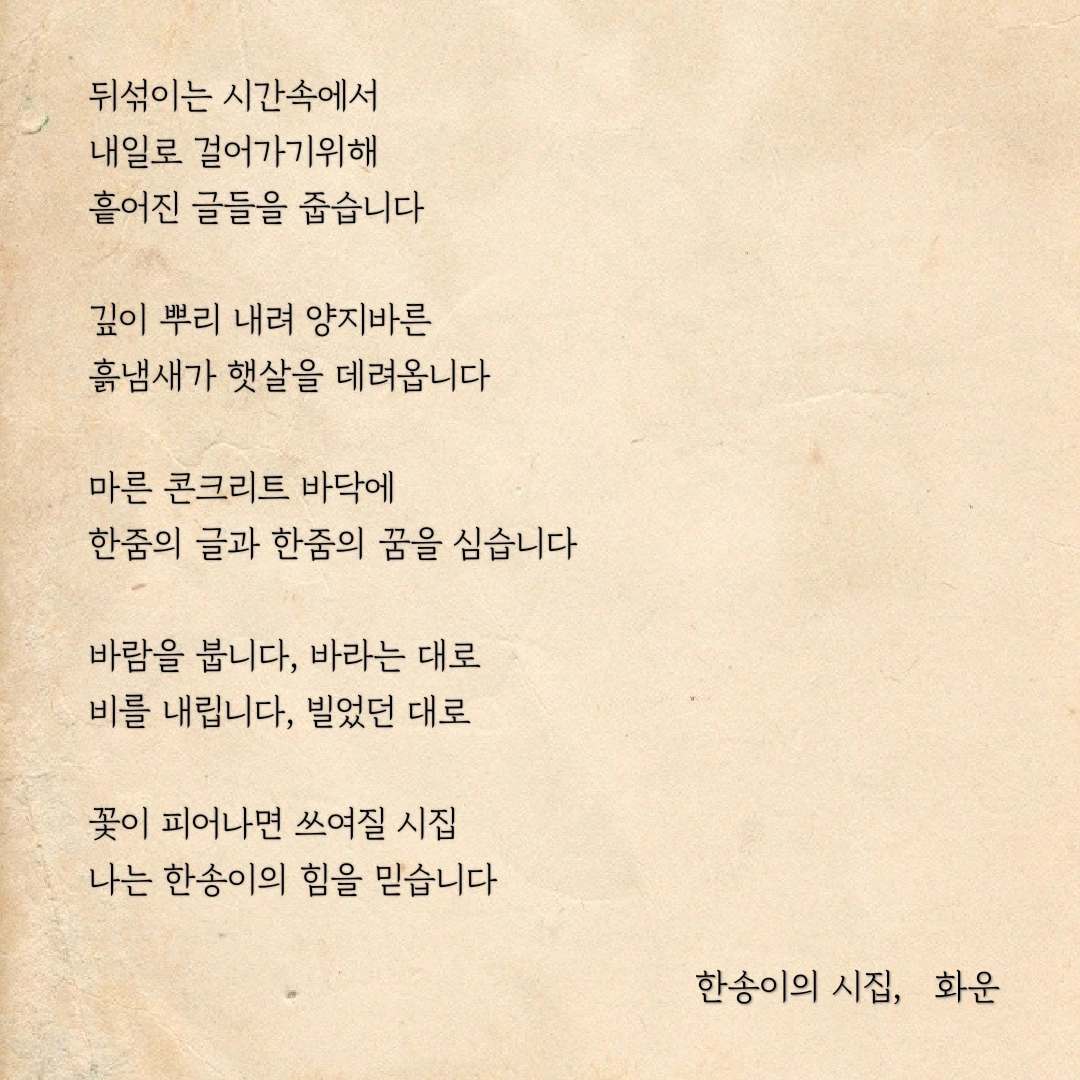 뒤섞이는 시간속에서
내일로 걸어가기위해
흩어진 글들을 줍습니다
깊이 뿌리 내려 양지바른
흙냄새가 햇살을 데려옵니다
마른 콘크리트 바닥에
한줌의 글과 한줌의 꿈을 심습니다
바람을 붑니다, 바라는 대로
비를 내립니다, 빌었던 대로
꽃이 피어나면 쓰여질 시집
나는 한송이의 힘을 믿습니다
한송이의 시집, 화운